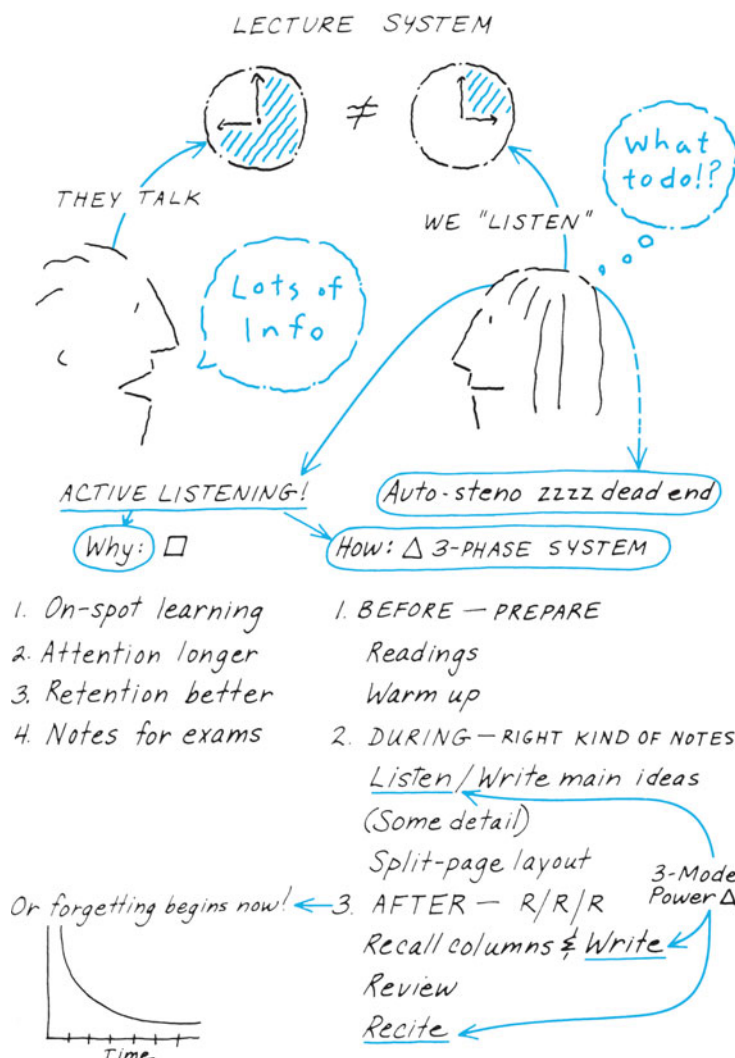 LECTURE SYSTEM
≠
THEY TALK
WE "LISTEN"
What
to do!?
Lots of
Info
ACTIVE LISTENING!
Auto-steno zzzz dead end
Why: □
How: △ 3-PHASE SYSTEM
1. On-spot learning
2. Attention longer
3. Retention better
4. Notes for exams
1. BEFORE — PREPARE
Readings
Warm up
2. DURING — RIGHT KIND OF NOTES
Listen / Write main ideas
(Some detail)
Split-page layout
3-Mode
Power △
Or forgetting begins now!
3. AFTER — R/R/R
Recall columns & Write
Review
Recite
Time